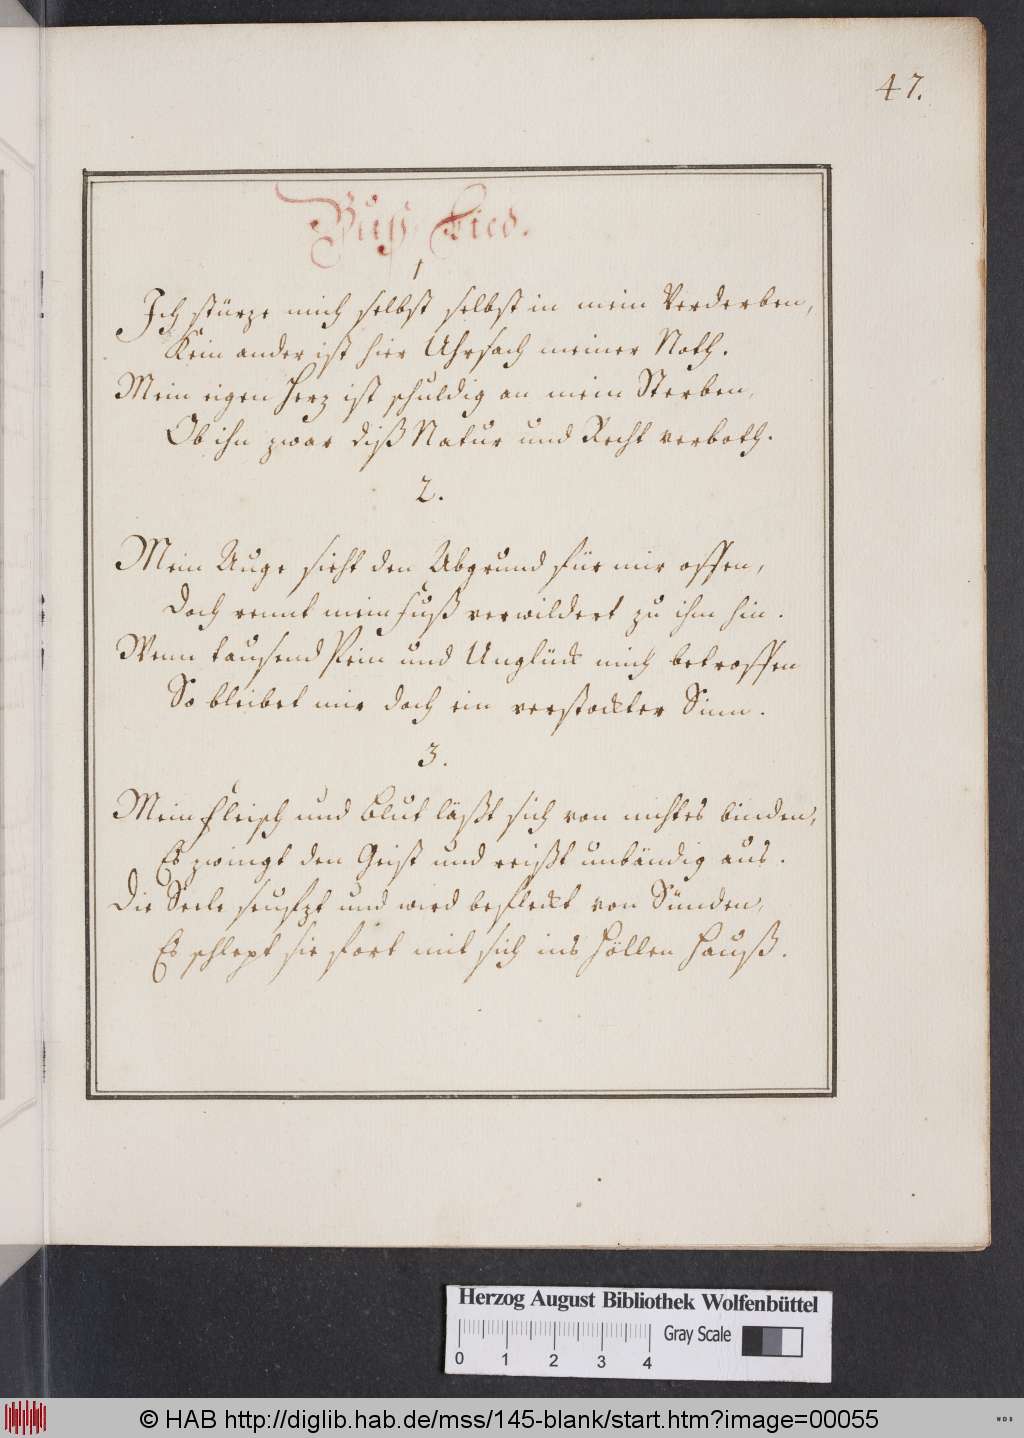 47.
Buß Lied.
1
Ich stürze mich selbst selbst in mein Verderben,
Kein ander ist hier Uhrsach meiner Noth.
Mein eigen Herz ist schuldig an mein Sterben,
Ob ihn zwar diß Natur und Recht verboth.
2.
Mein Auge sieht den Abgrund für mir offen,
Doch rennt mein Fuß verwildert zu ihm hin.
Wenn tausend Pein und Unglück mich betroffen
So bleibet mir doch ein verstockter Sinn.
3.
Mein Fleisch und Blut läßt sich von nichtes binden,
Es zwingt den Geist und reißt unbändig aus.
Die Seele seufzt und wird befleckt von Sünden,
Es schlept sie fort mit sich ins Höllen Hauß.
Herzog August Bibliothek Wolfenbüttel
Gray Scale
0 1 2 3 4
© HAB http://diglib.hab.de/mss/145-blank/start.htm?image=00055